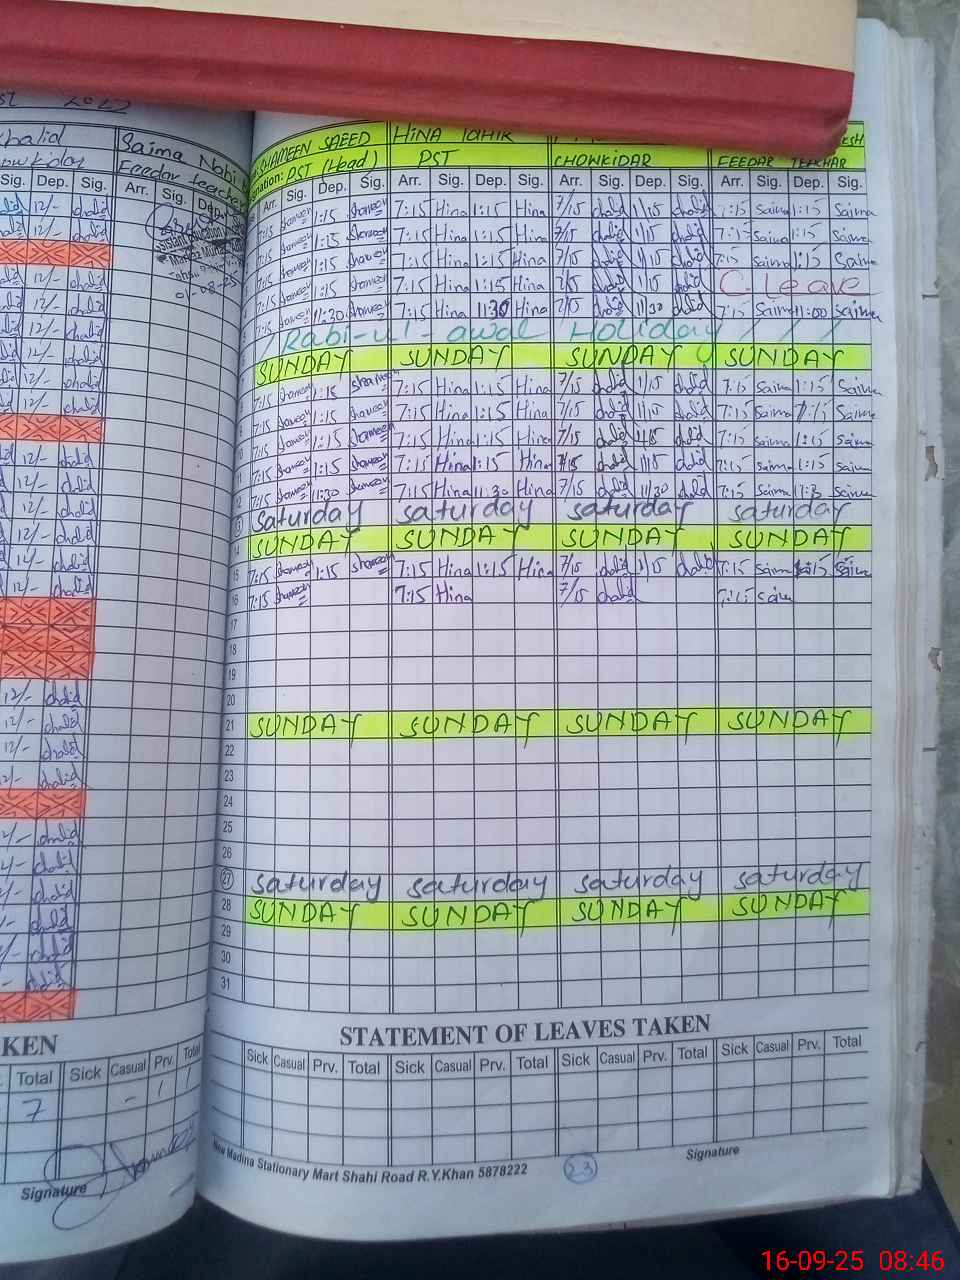 2025
Khalid Saima Nabi SHAMEEN SAEED HINA TAHIR
Feeder teacher PST (Head) PST CHOWKIDAR FEEDAR TEACHAR
Sig. Dep. Sig. Arr. Sig. Dep. Sig. Dep. Sig. Arr. Sig. Dep. Sig. Arr. Sig. Dep. Sig. Arr. Sig. Dep. Sig.
12/- chalid 7:15 shameen 1:15 shameen 7:15 Hina 1:15 Hina 7/15 chalid 1/15 chalid 7:15 Saima 1:15 Saima
12/- chalid 7:15 shameen 1:15 shameen 7:15 Hina 1:15 Hina 7/15 chalid 1/15 chalid 7:15 Saima 1:15 Saima
7:15 shameen 1:15 shameen 7:15 Hina 1:15 Hina 7/15 chalid 1/15 chalid 7:15 Saima 1:15 Saima
12/- chalid 7:15 shameen 1:15 shameen 7:15 Hina 1:15 Hina 7/15 chalid 1/15 chalid C-Leave
12/- chalid 7:15 shameen 11:30 shameen 7:15 Hina 11:30 Hina 7/15 chalid 11/30 chalid 7:15 Saima 11:00 Saima
12/- chalid Rabi-ul-awal Holiday
12/- chalid SUNDAY SUNDAY SUNDAY SUNDAY
12/- chalid 7:15 shameen 1:15 shameen 7:15 Hina 1:15 Hina 7/15 chalid 1/15 chalid 7:15 Saima 1:15 Saima
12/- chalid 7:15 shameen 1:15 shameen 7:15 Hina 1:15 Hina 7/15 chalid 1/15 chalid 7:15 Saima 1:15 Saima
10 7:15 shameen 1:15 shameen 7:15 Hina 1:15 Hina 7/15 chalid 1/15 chalid 7:15 Saima 1:15 Saima
12/- chalid 11 7:15 shameen 1:15 shameen 7:15 Hina 1:15 Hina 7/15 chalid 1/15 chalid 7:15 Saima 1:15 Saima
12/- chalid 12 7:15 shameen 11:30 shameen 7:15 Hina 11:30 Hina 7/15 chalid 11/30 chalid 7:15 Saima Saima
12/- chalid 13 saturday saturday saturday saturday
12/- chalid 14 SUNDAY SUNDAY SUNDAY SUNDAY
14/- chalid 15 7:15 shameen 1:15 shameen 7:15 Hina 1:15 Hina 7/15 chalid 1/15 chalid 7:15 Saima Saima
12/- chalid 16 7:15 shameen 7:15 Hina 7/15 chalid 7:15 Saima
17
18
19
12/- chalid 20
12/- chalid 21 SUNDAY SUNDAY SUNDAY SUNDAY
12/- chalid 22
12/- chalid 23
24
2/- chalid 25
chalid 26
chalid 27 saturday saturday saturday saturday
chalid 28 SUNDAY SUNDAY SUNDAY SUNDAY
chalid 29
chalid 30
31
KEN STATEMENT OF LEAVES TAKEN
Total Sick Casual Prv. Total Sick Casual Prv. Total Sick Casual Prv. Total Sick Casual Prv. Total Sick Casual Prv. Total
7 - 1 1
Signature New Madina Stationary Mart Shahi Road R.Y.Khan 5878222 23 Signature
16-09-25 08:46